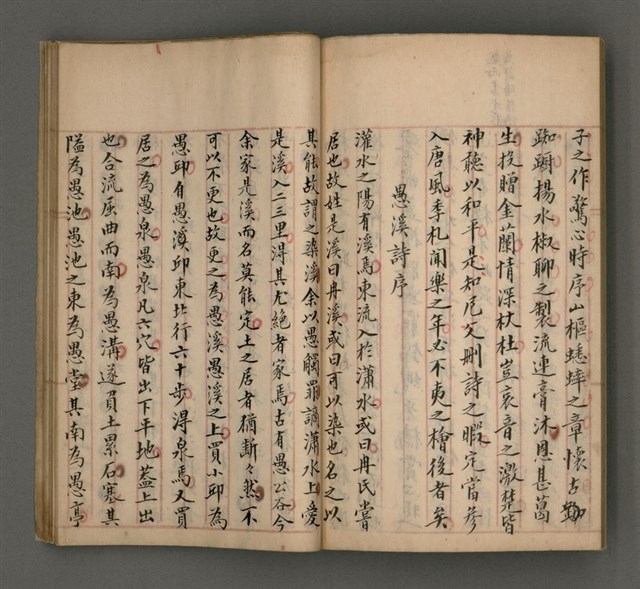 子之作驚心時序山樞蟋蟀之章懷古勤
踟蹰揚水椒聊之製流連膏沐恩甚葛
生投贈金蘭情深杕杜豈哀音之激楚皆
神聽以和平是知尼父刪詩之暇定當參
入唐風季札聞樂之年必不夷之檜後者矣
愚溪詩序
灌水之陽有溪焉東流入於瀟水或曰冉氏嘗
居也故姓是溪曰冉溪或曰可以染也名之以
其能故謂之染溪余以愚觸罪謫瀟水上愛
是溪入二三里得其尤絕者家焉古有愚公谷今
余家是溪而名莫能定土之居者猶斷々然不
可以不更也故更之為愚溪愚溪之上買小邱為
愚邱自愚溪邱東北行六十步得泉焉又買
居之為愚泉愚泉凡六穴皆出下平地蓋上出
也合流屈曲而南為愚溝遂負土累石塞其
隘為愚池愚池之東為愚堂其南為愚亭